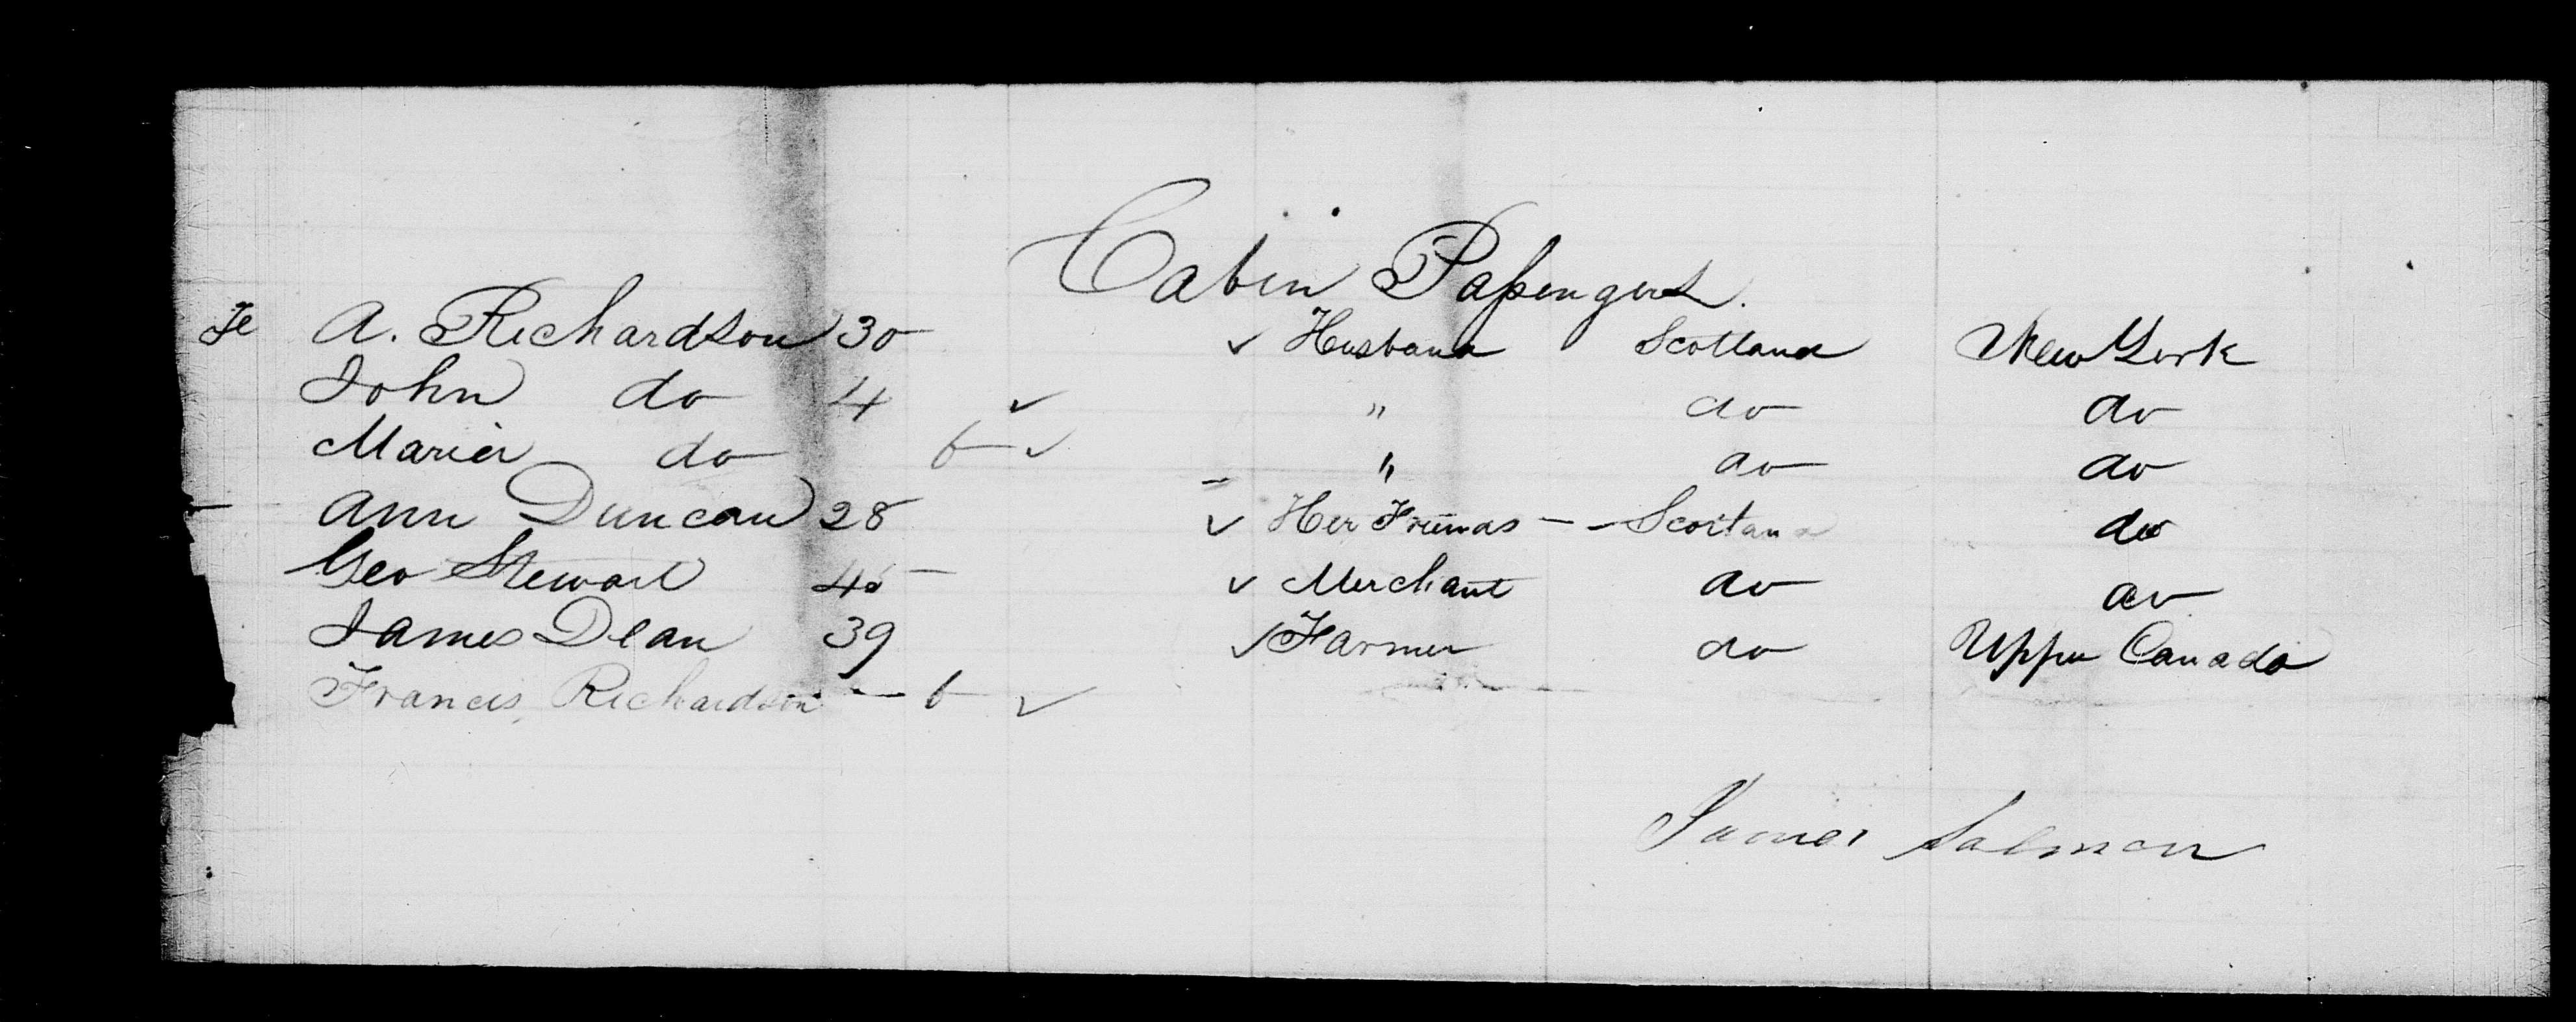 Cabin Passengers.
Fe A. Richardson 30 ✓ Husband Scotland New York
John do 4 ✓ " do do
Maria do 6 ✓ " do do
Ann Duncan 28 ✓ Her Friends - - Scotland do
Geo Stewart 45 ✓ Merchant do do
James Dean 39 ✓ Farmer do Upper Canada
Francis Richardson — 6 ✓
James Salmon